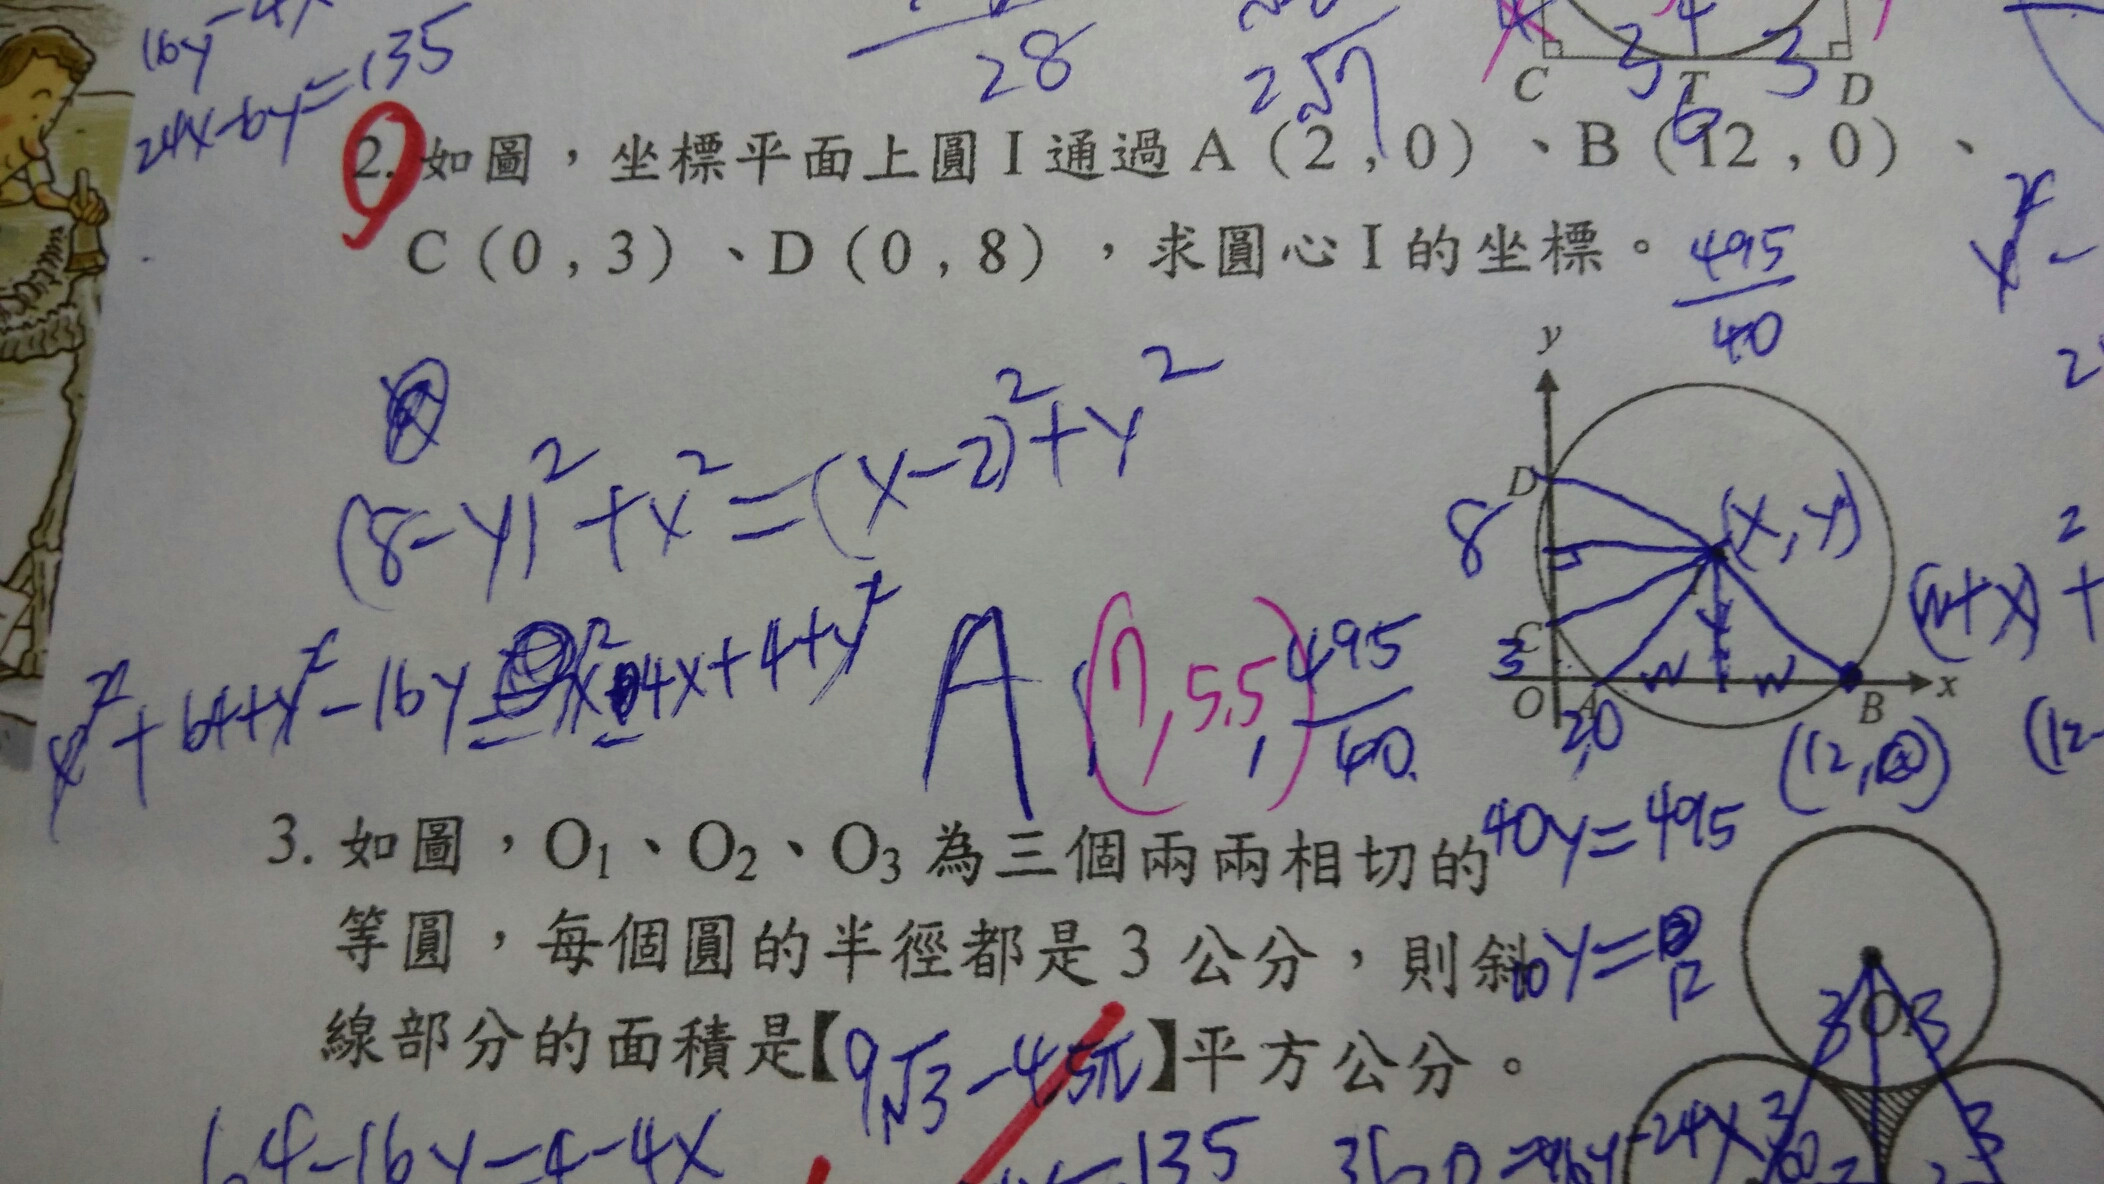 16y-4x
24x-6y=135
28
257
4
3 4 3
C T D
6
2. 如圖，坐標平面上圓 I 通過 A（2 , 0）、B（12 , 0）、
C（0 , 3）、D（0 , 8），求圓心 I 的坐標。
495
40
y
(8-y)²+x²=(x-2)²+y²
D
8
(x,y)
(w+x)²+
x²+64+y²-16y=x²-4x+4+y²
A
(7,5.5)
495
40
C
3
y
w w
O A B x
2,0
(12,0)
(12-
3. 如圖，O₁、O₂、O₃ 為三個兩兩相切的
40y=495
等圓，每個圓的半徑都是 3 公分，則斜
y=
12
線部分的面積是【9√3-4.5π】平方公分。
3 3
64-16y=4-4x
135
-24x
3 60
3